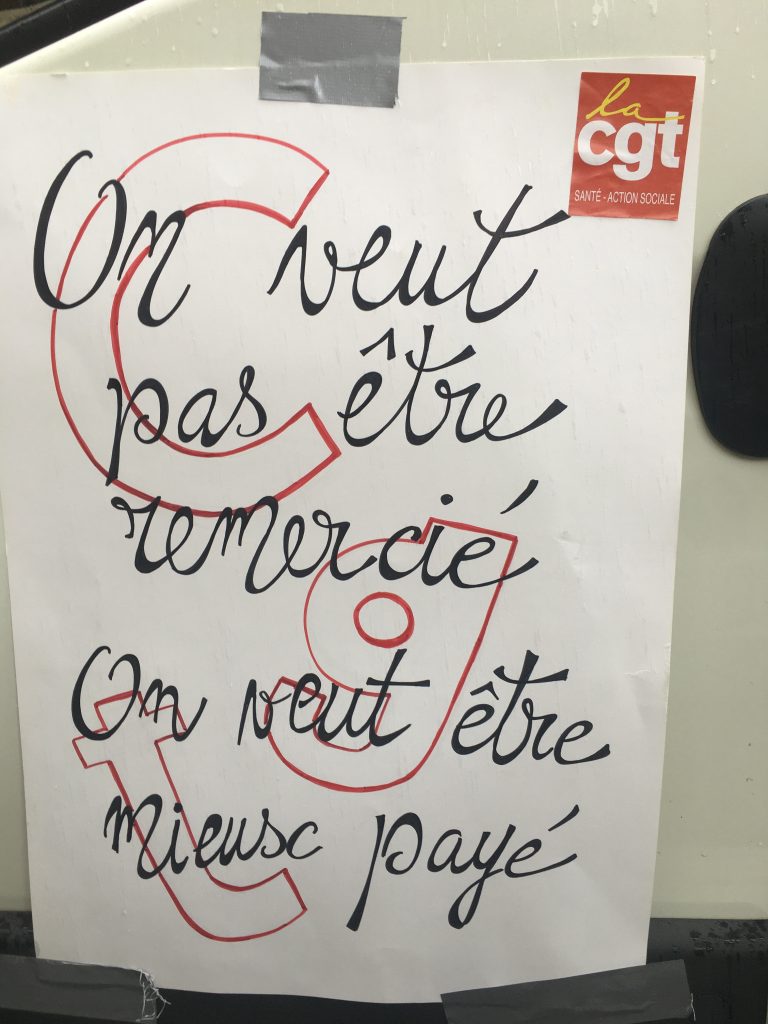 la
cgt
SANTÉ - ACTION SOCIALE
On veut
pas être
remercié
On veut être
mieux payé
C
g
t